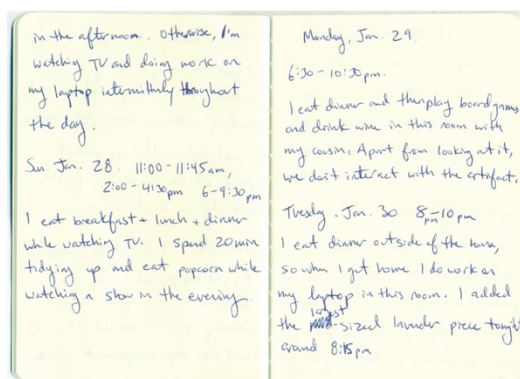 in the afternoon. Otherwise, I'm
watching TV and doing work on
my laptop intermittently throughout
the day.
Sun Jan. 28. 11:00-11:45am,
2:00-4:30pm 6-9:30pm
I eat breakfast + lunch + dinner
while watching TV. I spend 20min
tidying up and eat popcorn while
watching a show in the evening.
Monday, Jan. 29.
6:30-10:30pm.
I eat dinner and then play board games
and drink wine in this room with
my cousin. Apart from looking at it,
we don't interact with the artifact.
Tuesday. Jan. 30 8pm-10pm
I eat dinner outside of the home,
so when I get home I do work on
my laptop in this room. I added
largest
the -sized lavender piece tonight
around 8:15pm